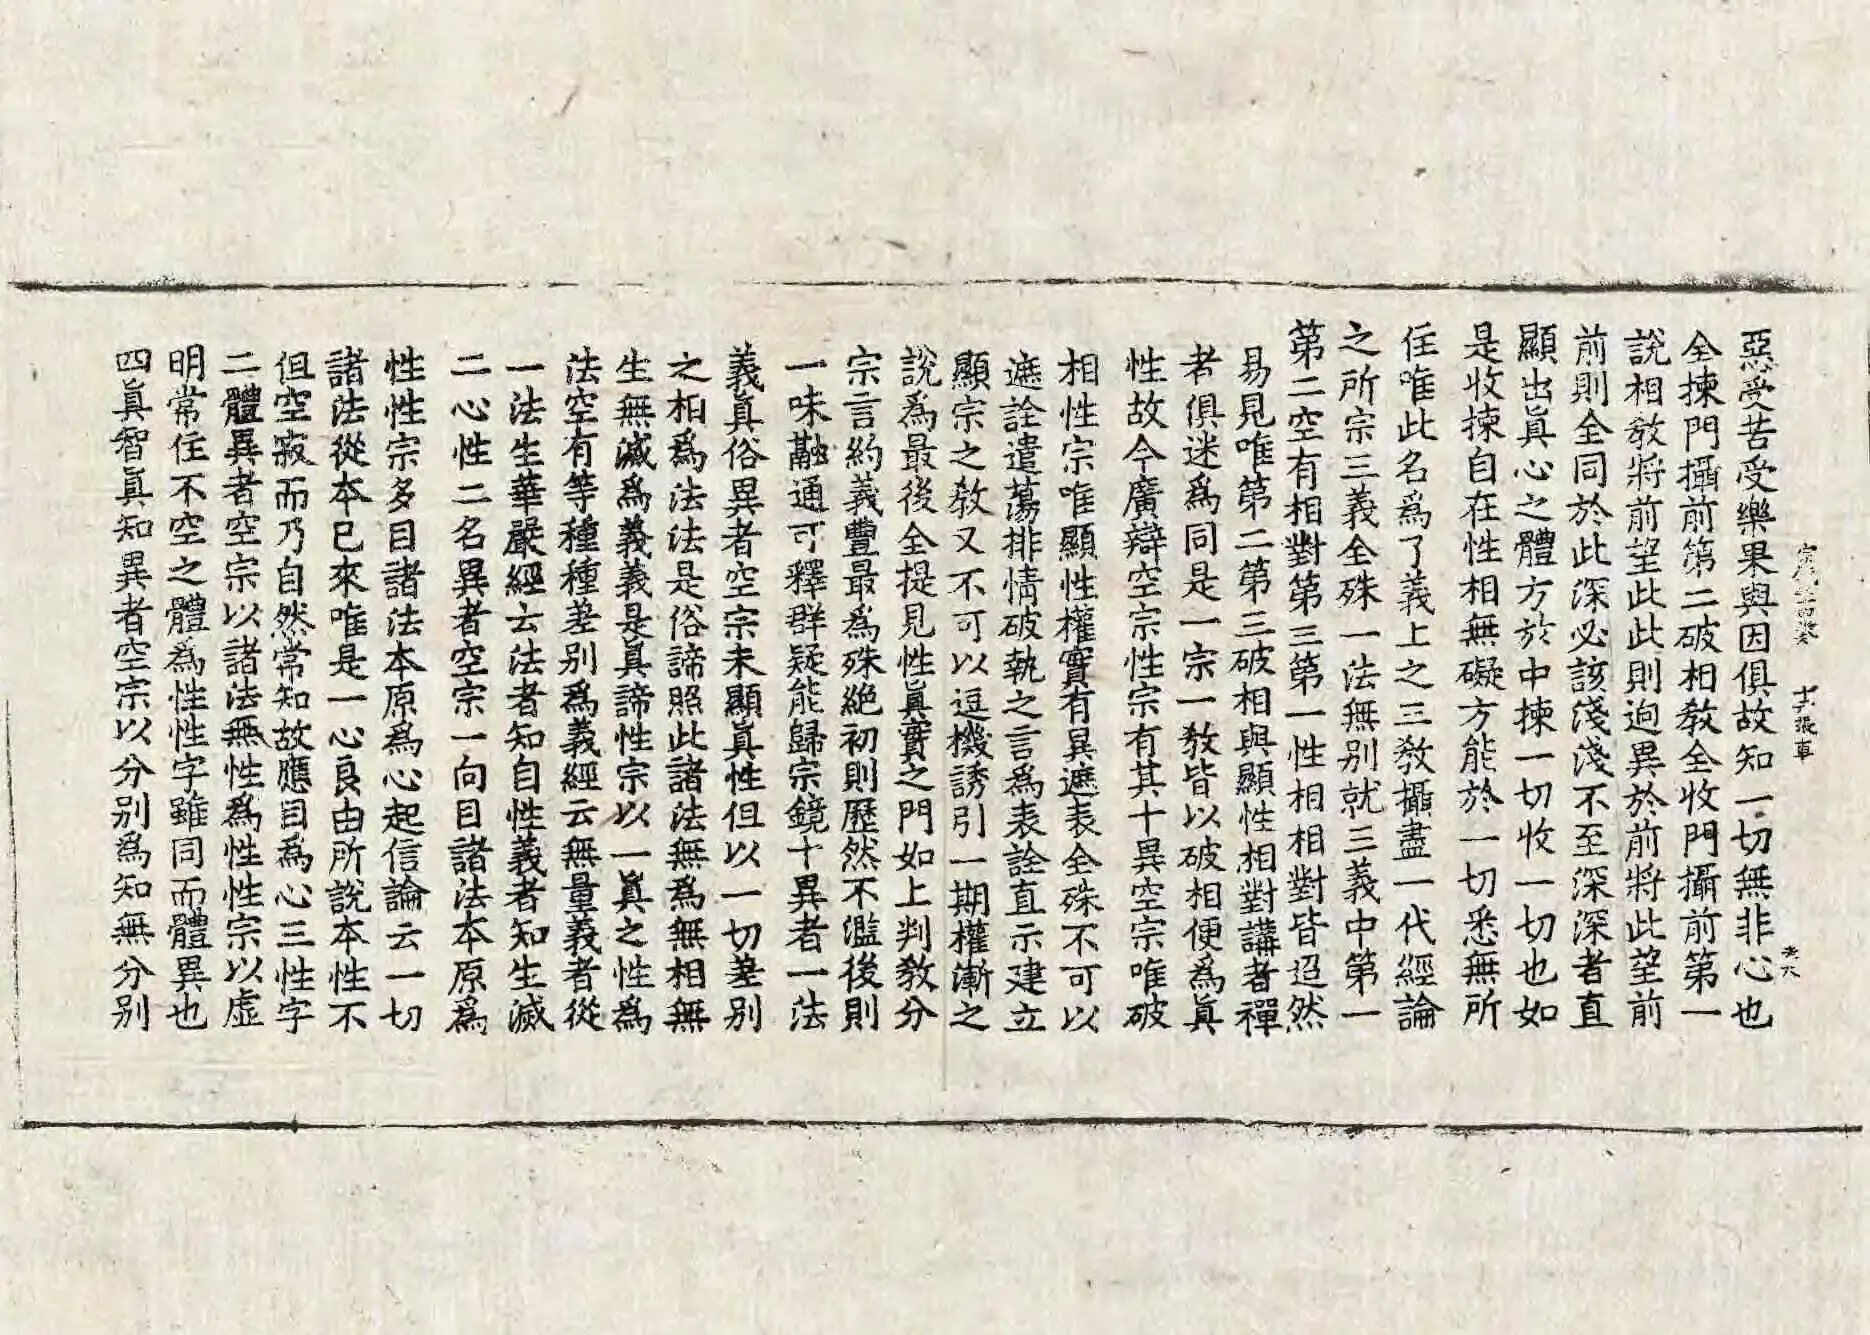 惡受苦受樂果與因俱故知一切無非心也
全揀門攝前第二破相教全收門攝前第一
說相教將前望此此則逈異於前將此望前
前則全同於此深必該淺淺不至深深者直
顯出眞心之體方於中揀一切收一切也如
是收揀自在性相無礙方能於一切悉無所
住唯此名爲了義上之三教攝盡一代經論
之所宗三義全殊一法無別就三義中第一
第二空有相對第三第一性相相對皆迢然
易見唯第二第三破相與顯性相對講者禪
者俱迷爲同是一宗一教皆以破相便爲眞
性故今廣辯空宗性宗有其十異空宗唯破
相性宗唯顯性權實有異遮表全殊不可以
遮詮遣蕩排情破執之言爲表詮直示建立
顯宗之教又不可以逗機誘引一期權漸之
說爲最後全提見性眞實之門如上判教分
宗言約義豐最爲殊絶初則歷然不濫後則
一味融通可釋群疑能歸宗鏡十異者一法
義眞俗異者空宗未顯眞性但以一切差別
之相爲法法是俗諦照此諸法無爲無相無
生無滅爲義義是眞諦性宗以一眞之性爲
法空有等種種差別爲義經云無量義者從
一法生華嚴經云法者知自性義者知生滅
二心性二名異者空宗一向目諸法本原爲
性性宗多目諸法本原爲心起信論云一切
諸法從本已來唯是一心良由所說本性不
但空寂而乃自然常知故應目爲心三性字
二體異者空宗以諸法無性爲性性宗以虛
明常住不空之體爲性性字雖同而體異也
四眞智眞知異者空宗以分別爲知無分別